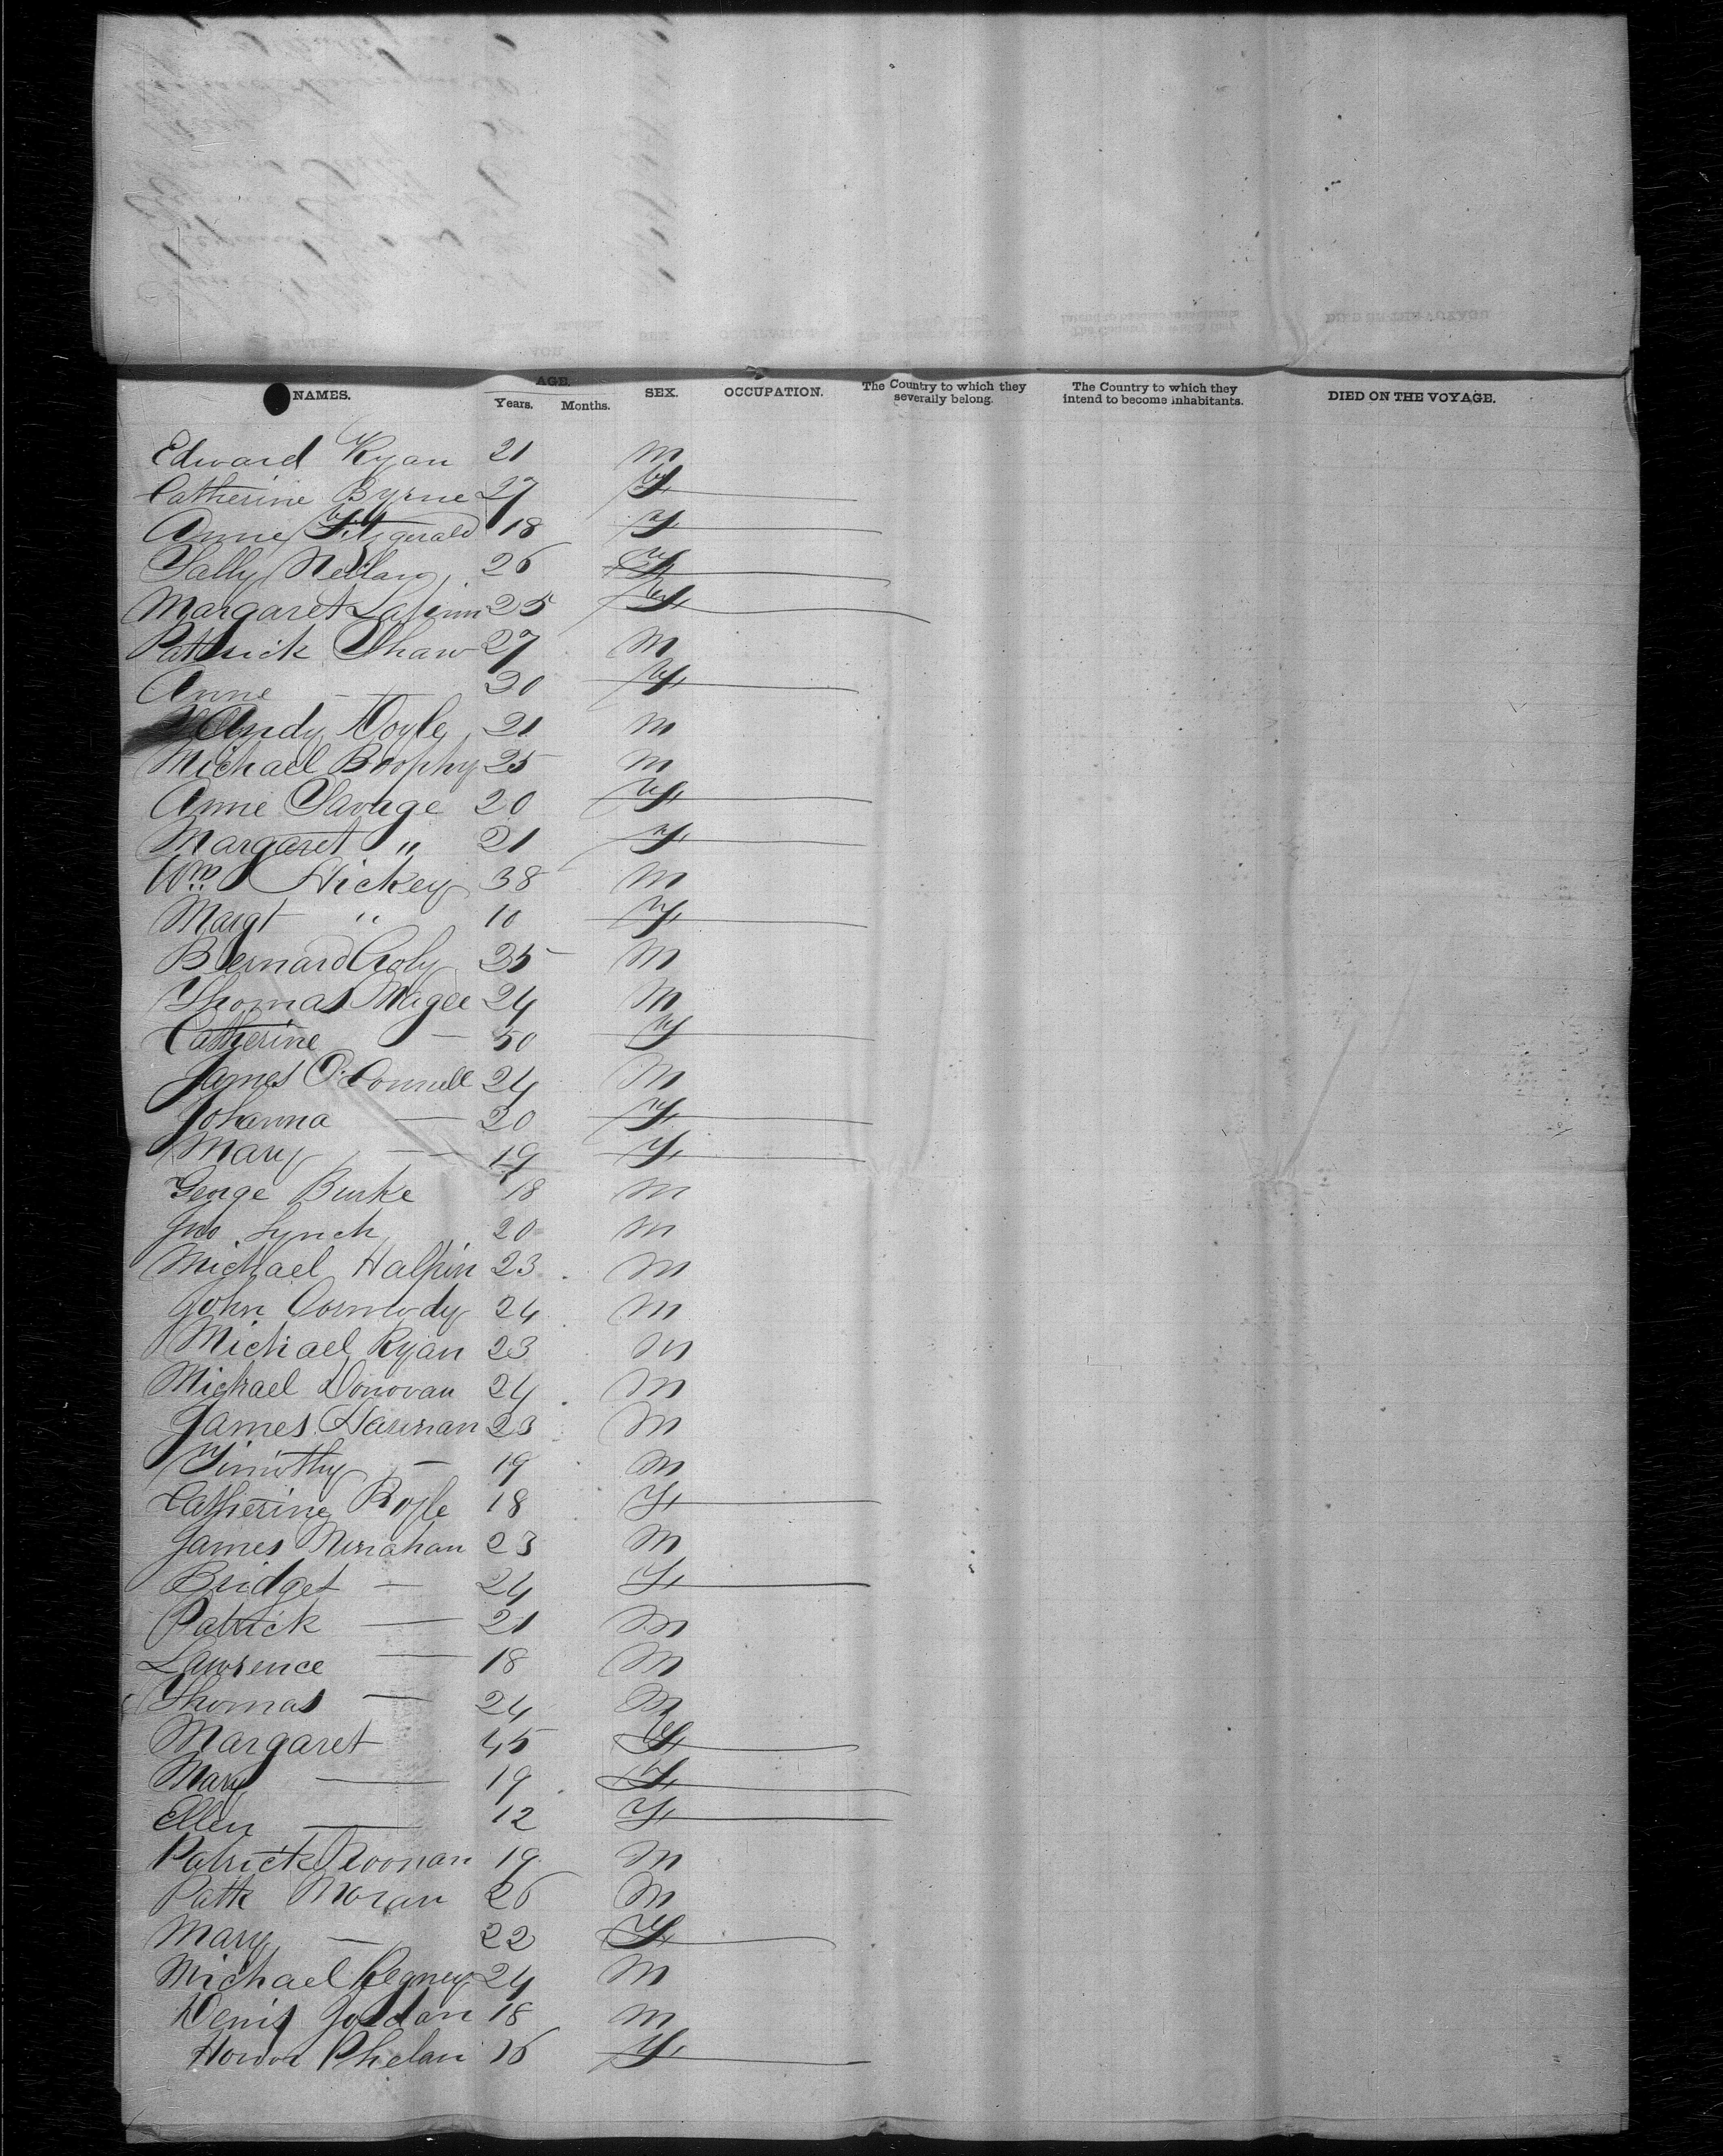 NAMES. AGE. Years. Months. SEX. OCCUPATION. The Country to which they severally belong. The Country to which they intend to become inhabitants. DIED ON THE VOYAGE.
Edward Ryan 21 M
Catherine Byrne 27 F
Anne Fitzgerald 18 F
Sally 26 F
Margaret 25 F
Patrick Shaw 27 M
Anne — F
Andy Doyle 21 M
Michael Brophy 25 M
Anne Savage 20 F
Margaret " 21 F
Wm Hickey 38 M
Margt " 10 F
Bernard M
Thomas Magee 24 M
Catherine — 50 F
James O'Connell 24 M
Johanna — 20 F
Mary — 19 F
George Burke 18 M
Jno Lynch 20 M
Michael Halpin 23 M
John 24 M
Michael Ryan 23 M
Michael Donovan 24 M
James 23 M
Timothy — 19 M
Catherine Boyle 18 F
James 23 M
Bridget — 24 F
Patrick — 21 M
Lawrence — 18 M
Thomas — 24 M
Margaret 45 F
Mary — 19 F
Ellen — 12 F
Patrick Noonan 19 M
Patk Moran 26 M
Mary — 22 F
Michael 24 M
Denis 18 M
Honor Phelan 16 F